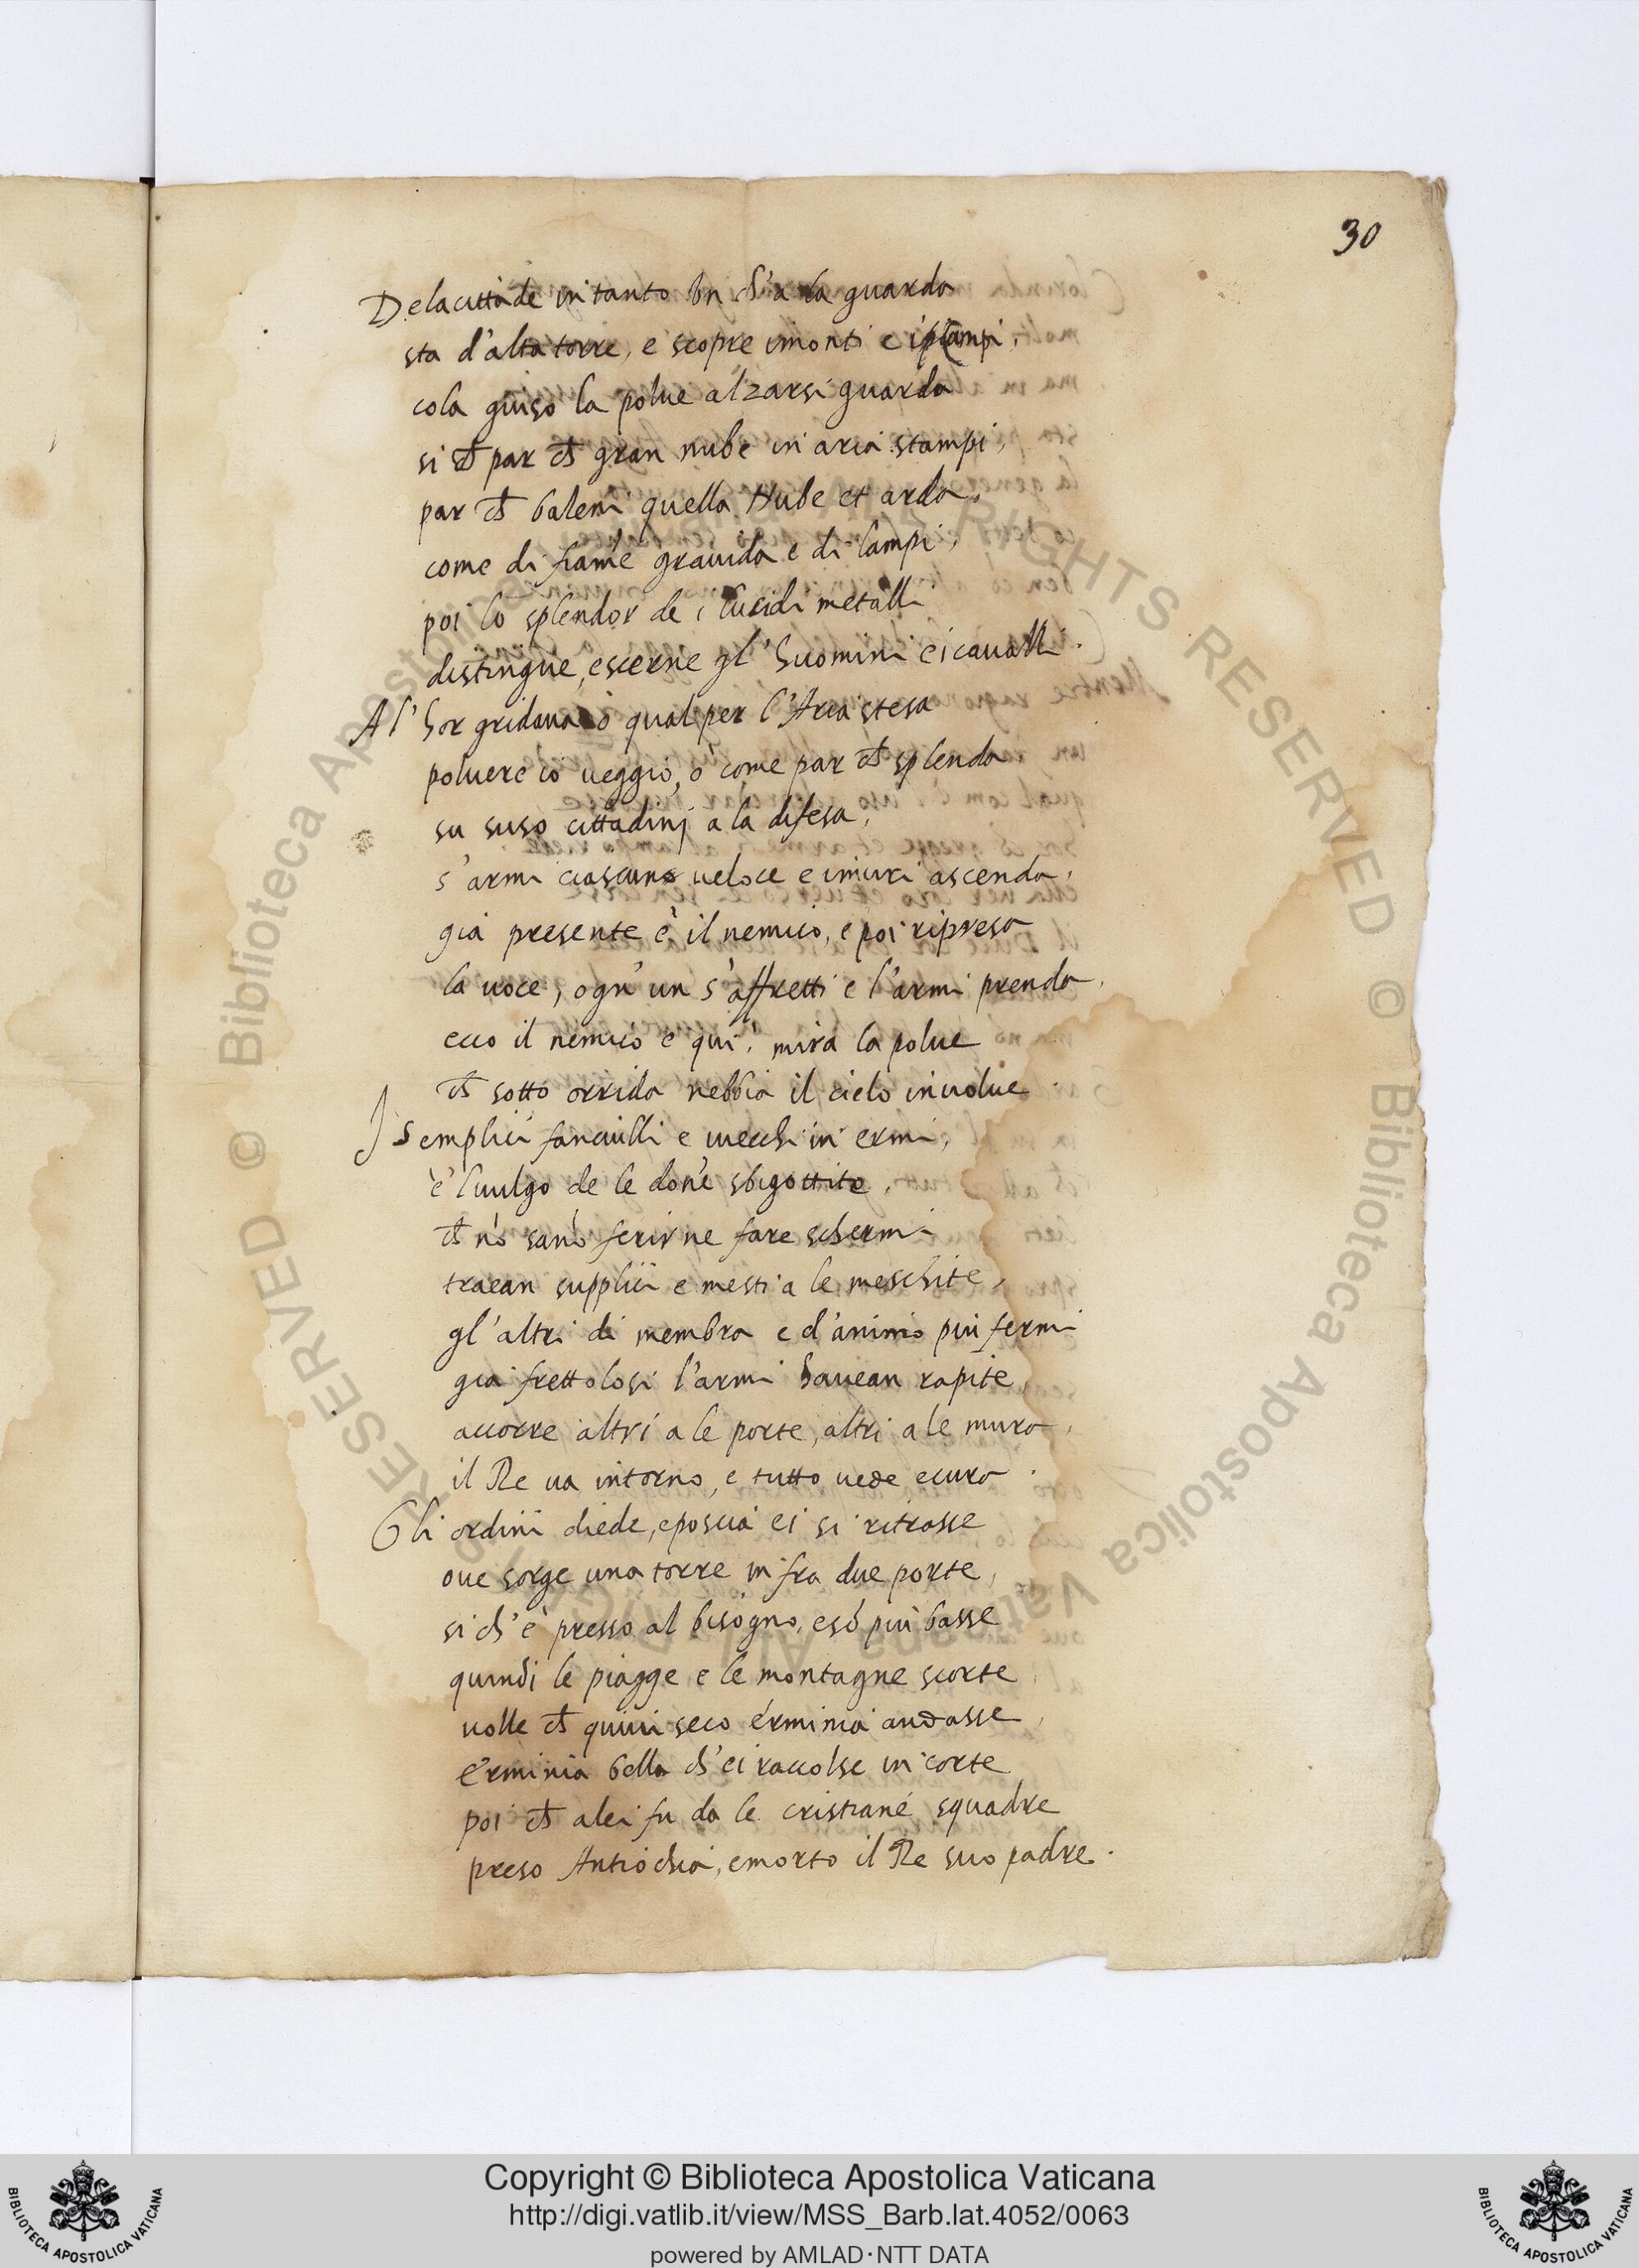 30
Dela cittade in tanto un ch'a la guarda
sta d'alta torre, e scopre i monti e i piani,
cola giuso la polue alzarsi guarda
si ch̄ par ch̄ gran nube in aria stampi,
par ch̄ baleni quella Nube et arda,
come di fiam̄e grauida e di lampi,
poi lo splendor de i lucidi metalli
distingue, e scerne gl'huomini e i caualli.
Al'hor gridaua o qual per l'Aria stesa
poluere io ueggio, o come par ch̄ splenda
su suso cittadini a la difesa,
s'armi ciascuno ueloce e i muri ascenda,
già presente è il nemico, e poi ripresa
la uoce, ogn'un s'affretti e l'armi prenda,
ecco il nemico è qui, mira la polue
ch̄ sotto orrida nebbia il cielo inuolue.
I semplici fanciulli e i uecchi in ermi,
e'l uulgo de le don̄e sbigottite,
ch̄ nō san̄o ferir ne fare schermi
traean supplici e mesti a le meschite,
gl'altri di membra e d'animo più fermi
già frettolosi l'armi hauean rapite,
accorre altri a le porte, altri a le mura,
il Re ua intorno, e tutto uede e cura.
Gli ordini diede, e poscia ei si ritrasse
oue sorge una torre in fra due porte,
si ch'è presso al bisogno, e sō più basse
quindi le piagge e le montagne scorte
uolle ch̄ quiui seco erminia andasse,
erminia bella ch'ei raccolse in corte
poi ch̄ a lei fu da le cristiane squadre
presa Antiochia, e morto il Re suo padre.
© Biblioteca Apostolica Vaticana ALL RIGHTS RESERVED © Biblioteca Apostolica Vaticana ALL RIGHTS RESERVED
BIBLIOTECA APOSTOLICA VATICANA
Copyright © Biblioteca Apostolica Vaticana
http://digi.vatlib.it/view/MSS_Barb.lat.4052/0063
powered by AMLAD·NTT DATA
BIBLIOTECA APOSTOLICA VATICANA